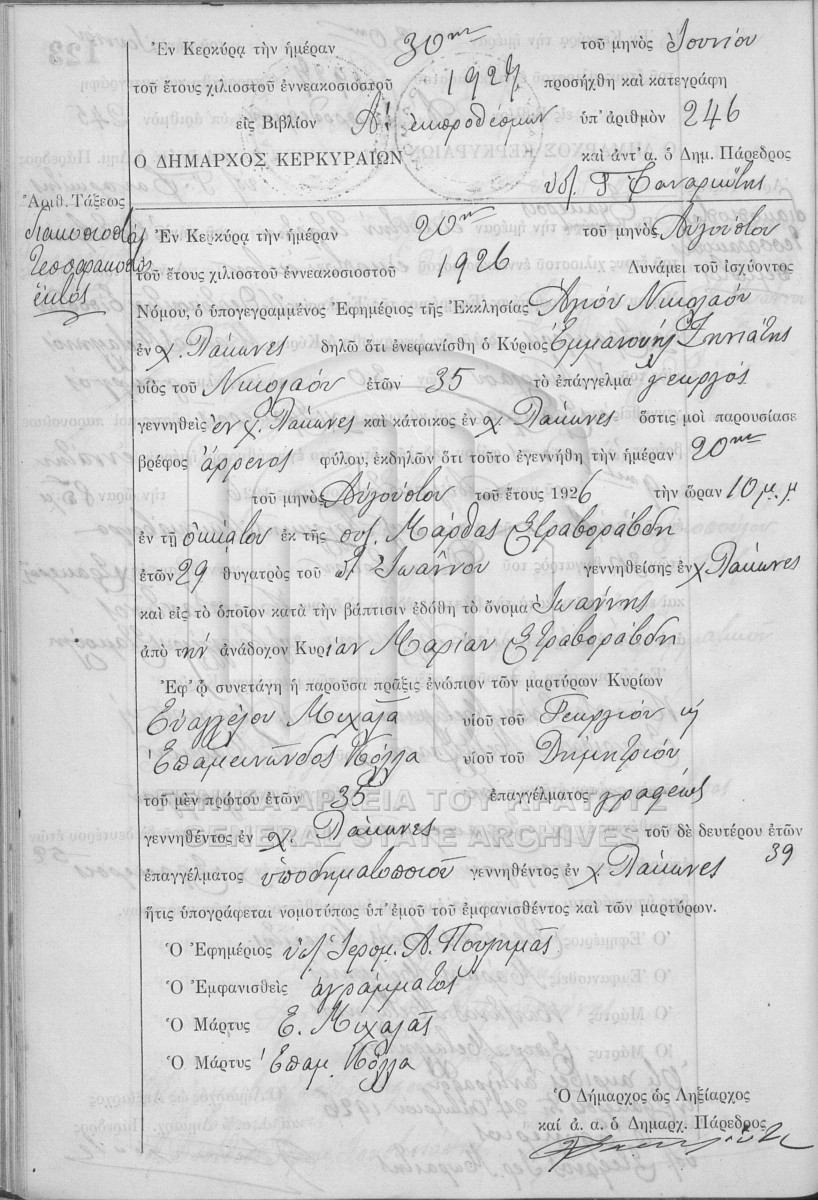 Ἐν Κερκύρᾳ τὴν ἡμέραν 30ην τοῦ μηνὸς Ἰουνίου
τοῦ ἔτους χιλιοστοῦ ἐννεακοσιοστοῦ 1927 προσήχθη καὶ κατεγράφη
εἰς Βιβλίον Α' ἐκπροθέσμων ὑπ' ἀριθμὸν 246
Ο ΔΗΜΑΡΧΟΣ ΚΕΡΚΥΡΑΙΩΝ καὶ ἀντ' α. ὁ Δημ. Πάρεδρος
Ἀριθ. Τάξεως
διακοσιοστὸς
τεσσαρακοστὸς
ἕκτος
Ἐν Κερκύρᾳ τὴν ἡμέραν 20ην τοῦ μηνὸς Αὐγούστου
τοῦ ἔτους χιλιοστοῦ ἐννεακοσιοστοῦ 1926 Δυνάμει τοῦ ἰσχύοντος
Νόμου, ὁ ὑπογεγραμμένος Ἐφημέριος τῆς Ἐκκλησίας Ἁγίου Νικολάου
ἐν χ. Λάκωνες δηλῶ ὅτι ἐνεφανίσθη ὁ Κύριος Ἐμμανουὴλ Ζηνιάτης
υἱὸς τοῦ Νικολάου ἐτῶν 35 τὸ ἐπάγγελμα γεωργὸς
γεννηθεὶς ἐν χ. Λάκωνες καὶ κάτοικος ἐν χ. Λάκωνες ὅστις μοὶ παρουσίασε
βρέφος ἄρρενος φύλου, ἐκδηλῶν ὅτι τοῦτο ἐγεννήθη τὴν ἡμέραν 20ην
τοῦ μηνὸς Αὐγούστου τοῦ ἔτους 1926 τὴν ὥραν 10 μ.μ
ἐν τῇ οἰκίᾳ του ἐκ τῆς συζ. Μάρθας Στραβοράβδη
ἐτῶν 29 θυγατρὸς τοῦ Ἰωάννου γεννηθείσης ἐν χ. Λάκωνες
καὶ εἰς τὸ ὁποῖον κατὰ τὴν βάπτισιν ἐδόθη τὸ ὄνομα Ἰωάννης
ἀπὸ τὴν ἀνάδοχον Κυρίαν Μαρίαν Στραβοράβδη
Ἐφ' ᾧ συνετάγη ἡ παροῦσα πρᾶξις ἐνώπιον τῶν μαρτύρων Κυρίων
Εὐαγγέλου Μιχαλᾶ υἱοῦ τοῦ Γεωργίου καὶ
Ἐπαμεινώνδος Κόλλα υἱοῦ τοῦ Δημητρίου
τοῦ μὲν πρώτου ἐτῶν 35 ἐπαγγέλματος γραφέως
ΓΕΝΙΚΑ ΑΡΧΕΙΑ ΤΟΥ ΚΡΑΤΟΥΣ
γεννηθέντος ἐν χ. Λάκωνες τοῦ δὲ δευτέρου ἐτῶν 39
GENERAL STATE ARCHIVES
ἐπαγγέλματος ὑποδηματοποιοῦ γεννηθέντος ἐν χ. Λάκωνες
ἥτις ὑπογράφεται νομοτύπως ὑπ' ἐμοῦ τοῦ ἐμφανισθέντος καὶ τῶν μαρτύρων.
Ὁ Ἐφημέριος Ἱερομ. Α.
Ὁ Ἐμφανισθεὶς ἀγράμματος
Ὁ Μάρτυς Ε. Μιχαλᾶς
Ὁ Μάρτυς Ἐπαμ. Κόλλα
Ὁ Δήμαρχος ὡς Ληξίαρχος
καὶ ἀ. α. ὁ Δημαρχ. Πάρεδρος